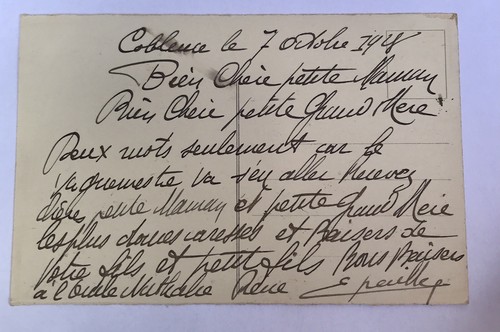 Coblence le 7 octobre 1918
Bien Chère petite Maman
Bien Chère petite Grand Mère
Deux mots seulement car le
vaguemestre va s'en aller Recevez
chère petite Maman et petite Grand Mère
les plus douces caresses et Baisers de
votre fils et petit fils Bons Baisers
à l'oncle Nathalie René